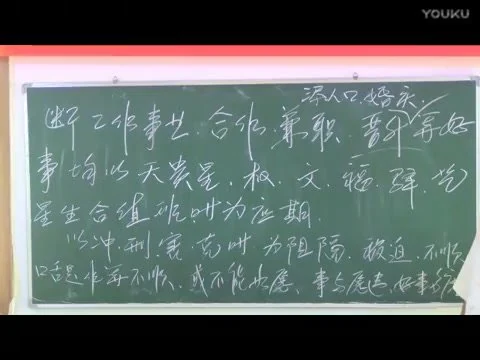 YOUKU
添人口.婚庆.
断工作事业.合作.兼职.晋升等好
事均以天贵星.权.文.福.驿.
星生合值班时为应期.
以冲.刑.害.克时为阻隔.被迫.不顺
口舌是非等不顺.或不能如愿、事与愿违、好事